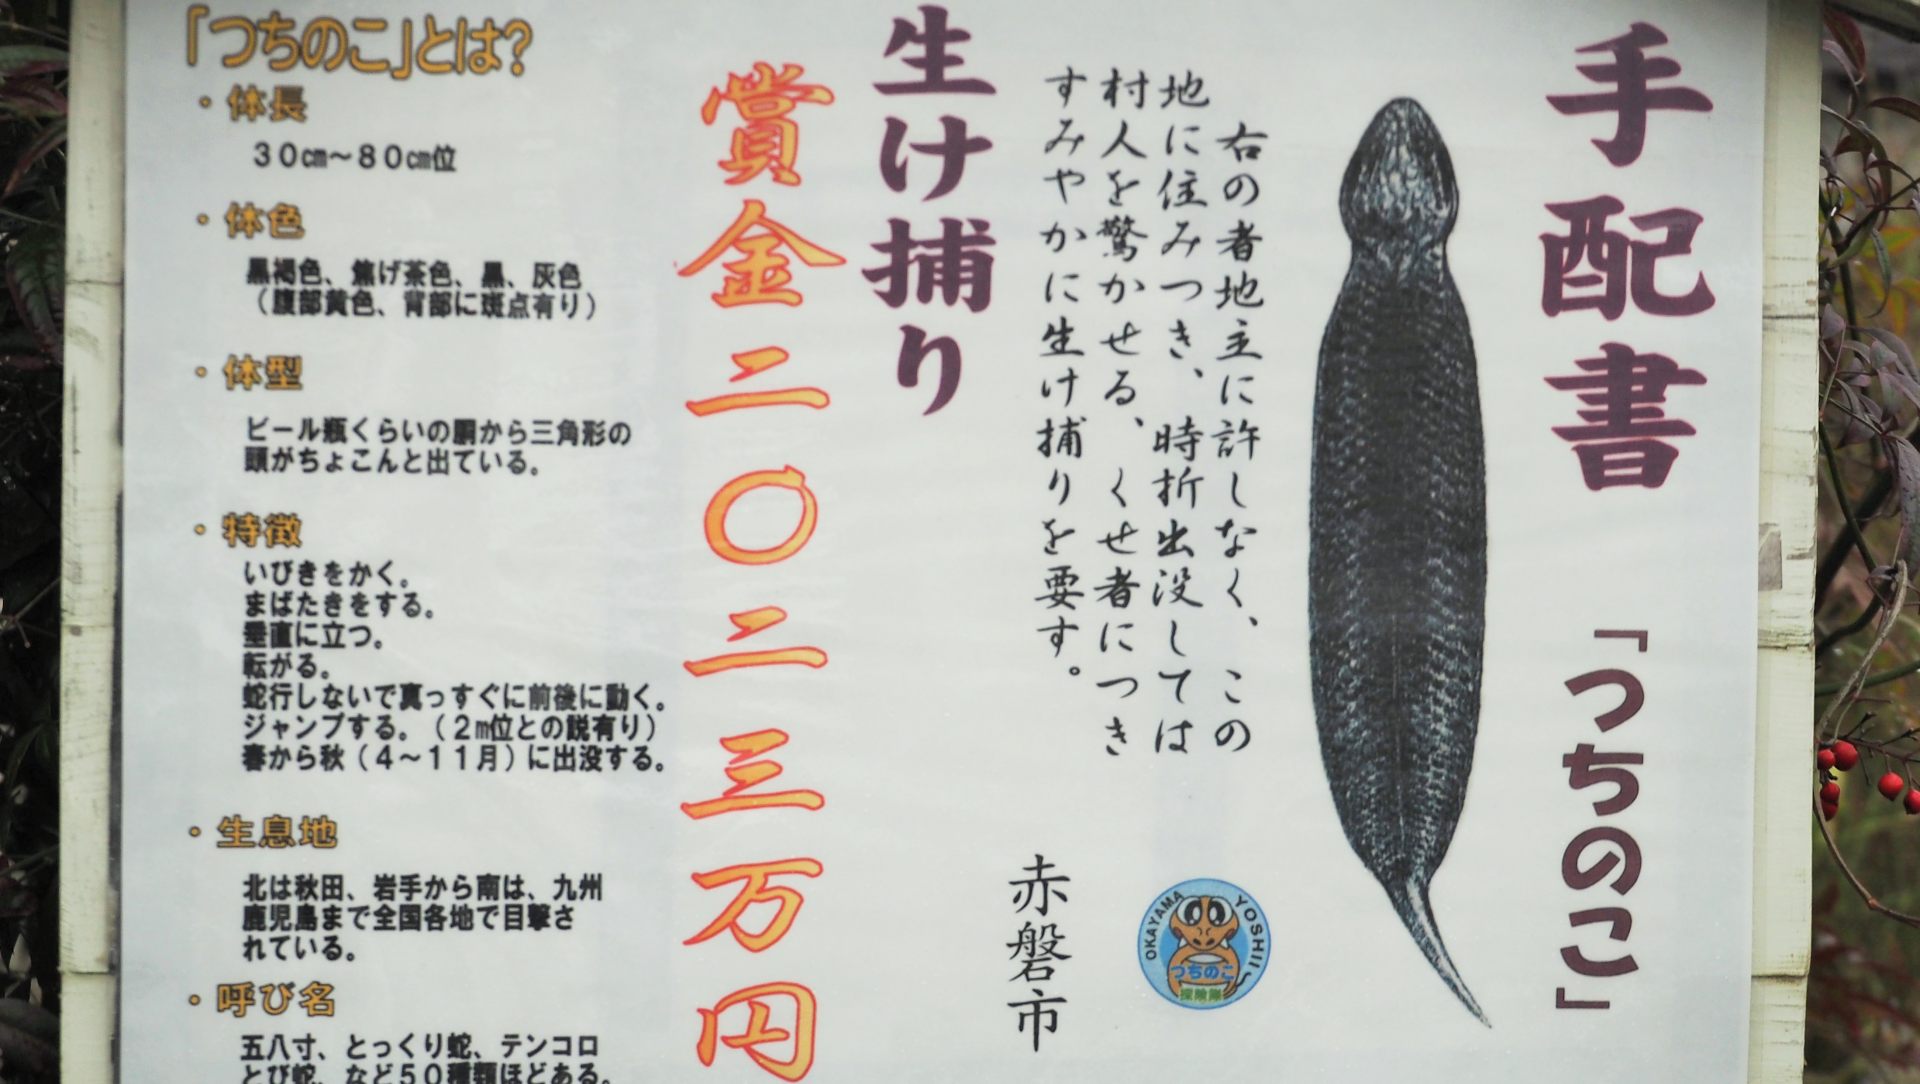 手配書 「つちのこ」
右の者地主に許しなく、この
地に住みつき、時折出没しては
村人を驚かせる、くせ者につき
すみやかに生け捕りを要す。
赤磐市
OKAYAMA YOSHII
つちのこ
探険隊
生け捕り
賞金二〇二三万円
「つちのこ」とは?
・体長
30㎝~80㎝位
・体色
黒褐色、焦げ茶色、黒、灰色
(腹部黄色、背部に斑点有り)
・体型
ビール瓶くらいの胴から三角形の
頭がちょこんと出ている。
・特徴
いびきをかく。
まばたきをする。
垂直に立つ。
転がる。
蛇行しないで真っすぐに前後に動く。
ジャンプする。(2m位との説有り)
春から秋(4~11月)に出没する。
・生息地
北は秋田、岩手から南は、九州
鹿児島まで全国各地で目撃さ
れている。
・呼び名
五八寸、とっくり蛇、テンコロ
とび蛇、など50種類ほどある。